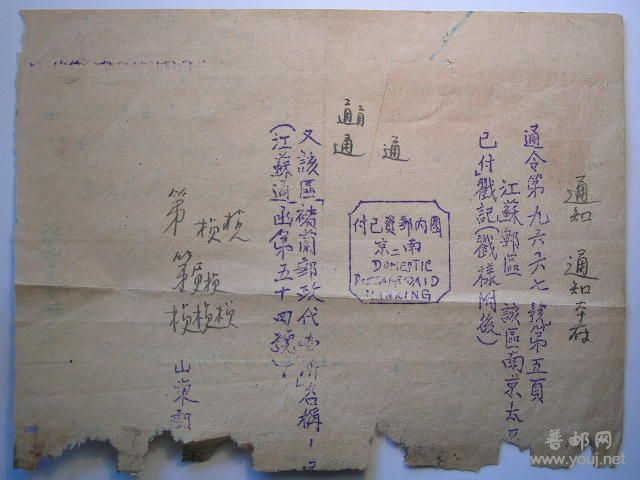 通知 通知
通令第九六六七號第五頁
江蘇郵區 該區南京太
已付」戳記(戳樣附後)
通
通
通
國內郵資已付
南二京
DOMESTIC
POSTAGE PAID
MARKING
又該區「褚蘭郵政代办所」名稱
(江蘇通函第五十四號)
楨 楨
第
第 楨
楨楨楨
山東郵
普邮网
www.youj.net